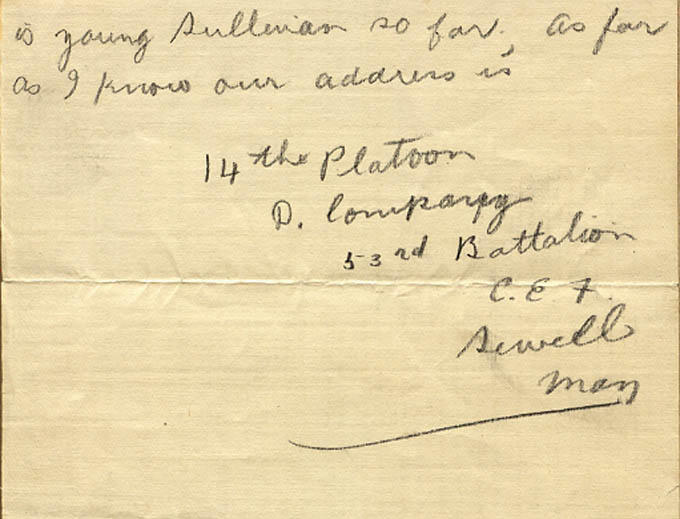 is young Sullivan so far. As far
as I know our address is
14 the Platoon
D. Company
53rd Battalion
C. E F.
Sewell
Man